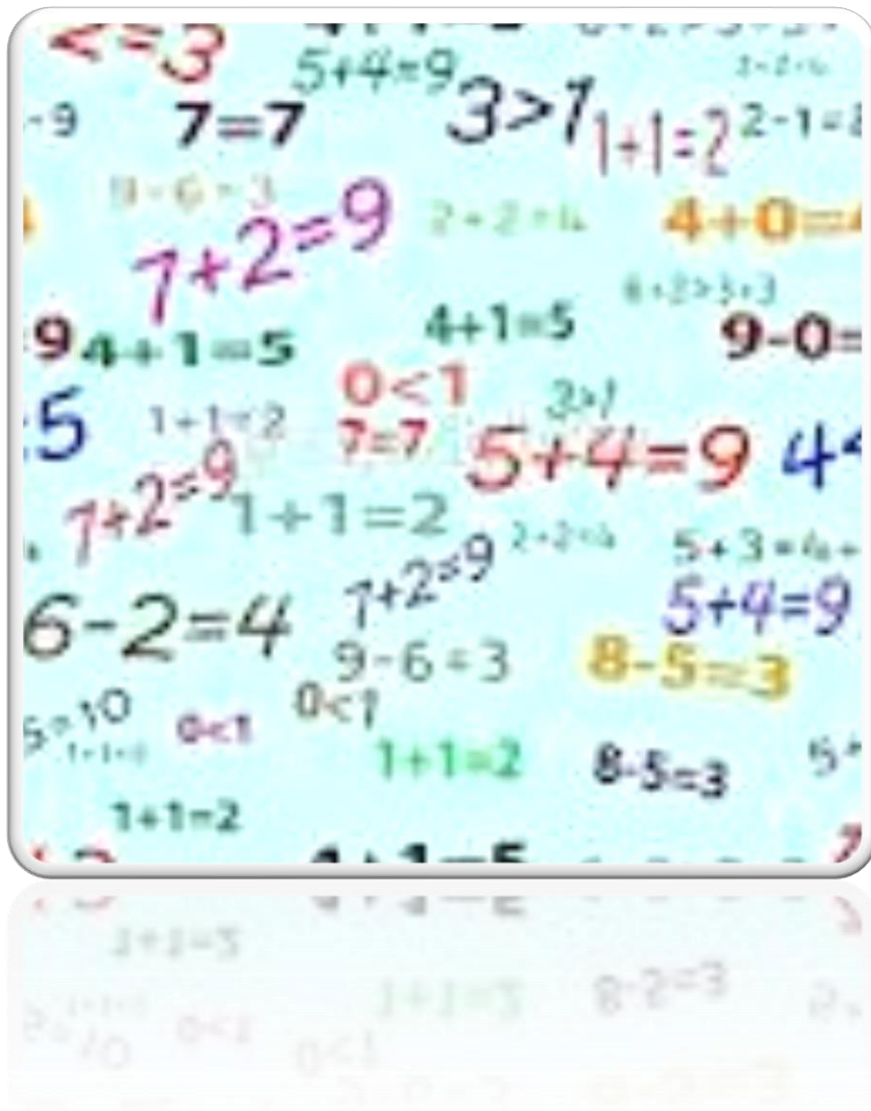 2=3
5+4=9
3>1
-9
7=7
1+1=2
2-1=
9-6=3
7+2=9
2+2=4
4+0=4
6+2>3+3
9
4+1=5
4+1=5
9-0=
0<1
3>1
5
1+1=2
7=7
5+4=9
4<
7+2=9
1+1=2
7+2=9
2+2=4
5+3=4+
6-2=4
5+4=9
9-6=3
8-5=3
5=10
0<1
0<1
1+1=2
8-5=3
5+
1+1=2
4+1=5